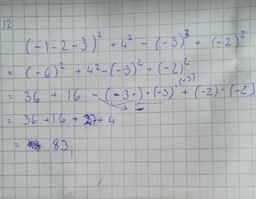 12
(-1-2-3)² + 4² - (-3)³ + (-2)²
= (-6)² + 4² - (-3)² + (-2)²
= 36 + 16 - (-3·)·(-3)·(-3) + (-2)·(-2)
= 36 + 16 + 27 + 4
= 83